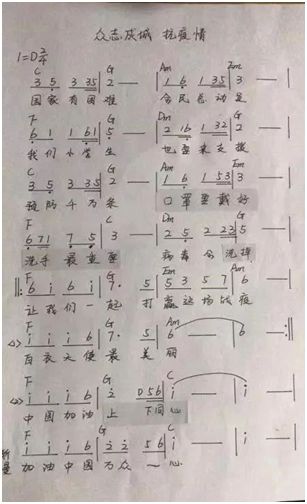 众志成城 抗疫情
1=D 2/4
C G Am Em
3 5 3 35 | 2 — | 1 6 1 35 | 3 — |
国家有困难 全民总动员
F G Dm G
6 1 1 61 | 5 — | 2 16 1 32 | 2 — |
我们小学生 也要来支援
C G Am Em
3 5 3 35 | 2 — | 1 6 1 53 | 3 — |
预防千万条 口罩要戴好
F G C Dm G
6 71 7 5 | 3 — | 2 5 2 23 | 5 — |
洗手最重要 病毒会洗掉
F G Em Am
‖: 6 i 6 i | 7· 5 | 5 3 5 7 | 6 — |
让我们一起 打赢这场战疫
F G Am
i i i 6 | 7· 5 | 6 — | 6 — :‖
白衣天使最美丽
F G C
i i i 6 | 2 0 56 | i — | i — |
中国加油 上下同心
F G C
i i i 6 | 2 2 56 | i — | i — ‖
加油中国万众一心